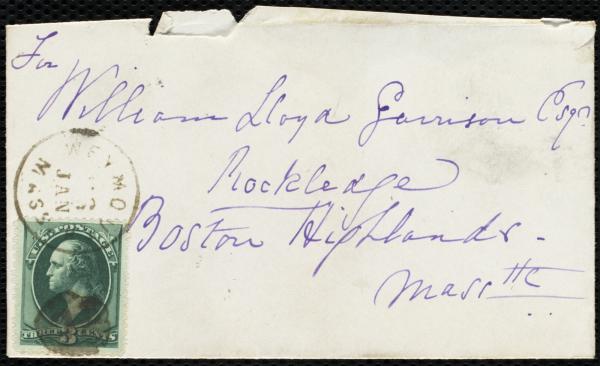 For
William Lloyd Garrison Esqr.
Rockledge
Boston Highlands.
Masstts
WEYMO
JAN
MASS
U.S. POSTAGE
THREE 3 CENTS